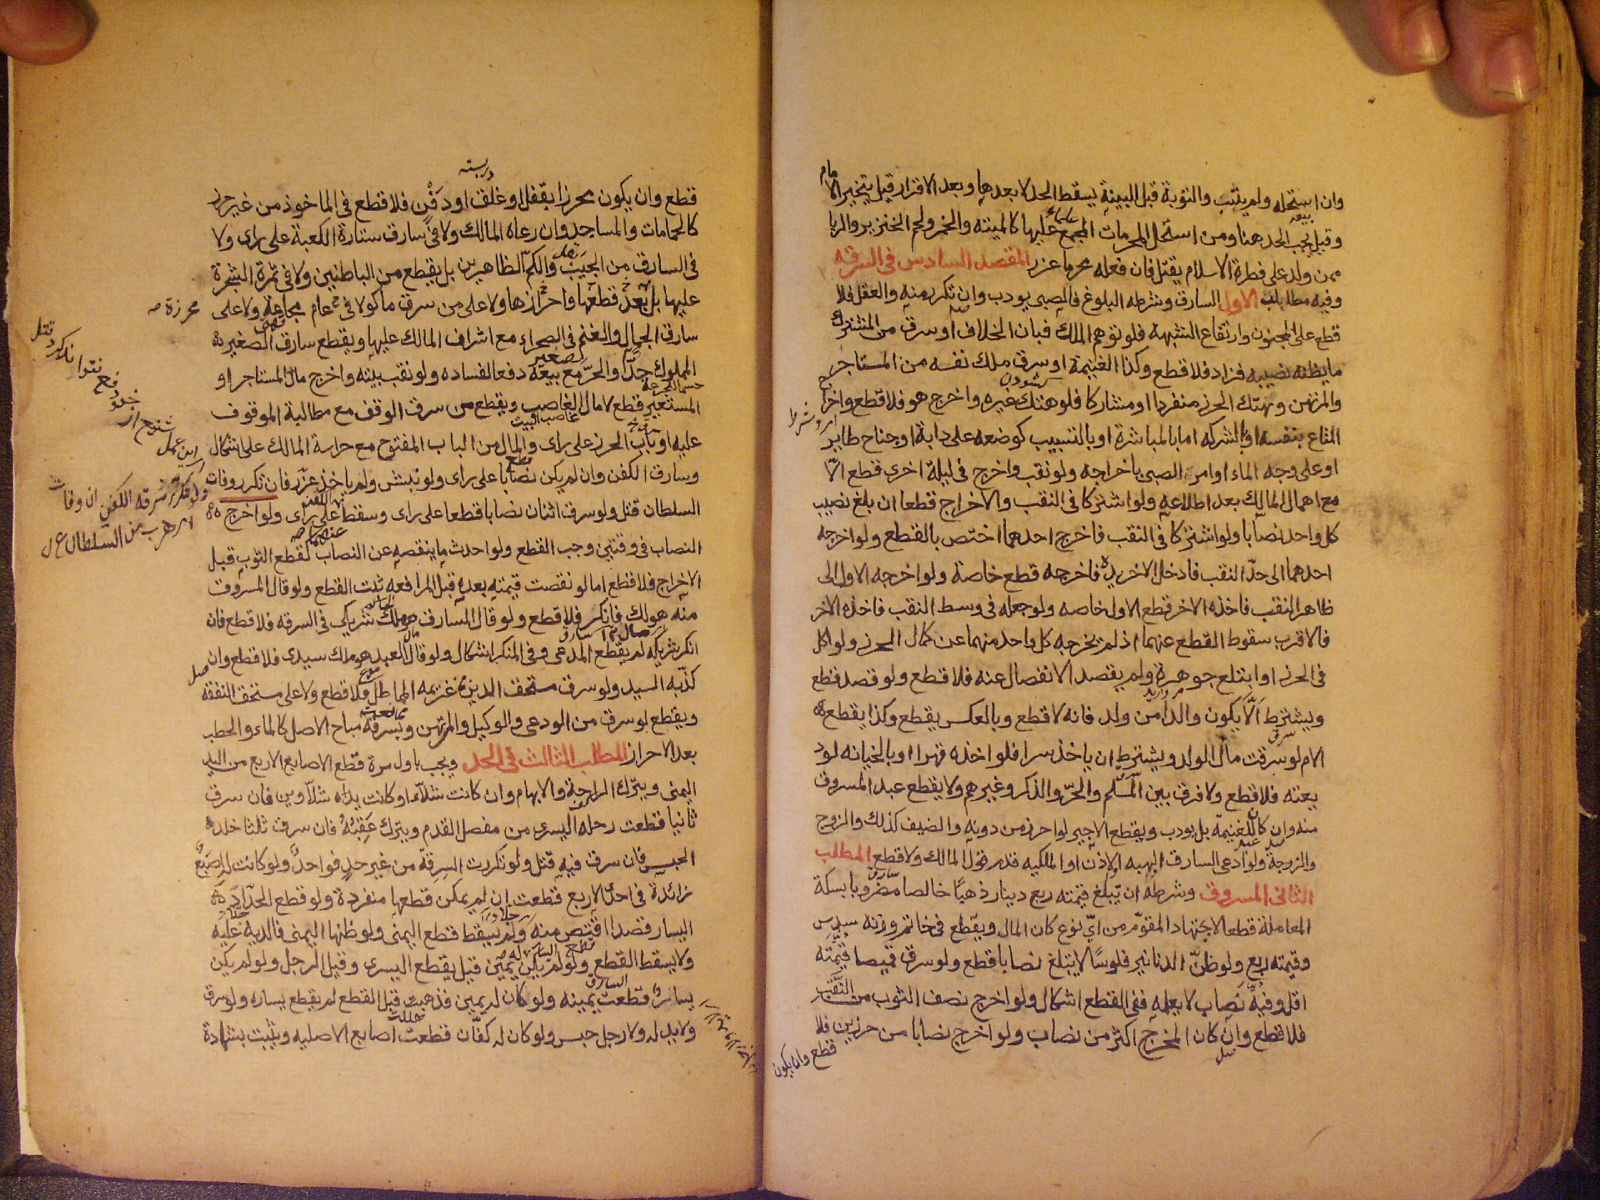 وان استحله ولم يتب والتوبة قبل البينة يسقط الحد لا بعدها وبعد الاقرار قيل يتخير الامام
وقيل يجب الحد هنا ومن استحل المحرمات المجمع عليها كالميته والخمر ولحم الخنزير والربا
ممن ولد على فطرة الاسلام يقتل فان فعله محرما عزر المقصد السادس فى السرقه
وفيه مطالب الاول السارق وشرطه البلوغ فالصبى يودب وان تكرر منه والعقل فلا
قطع على المجنون وارتفاع الشبهة فلو توهم الملك فبان الخلاف او سرق من المشترك
ما يظنه نصيبه فزاد فلا قطع وكذا الغنيمة او سرق ملك نفسه من المستاجر
والمرتهن وتهتك الحرز منفردا او مشاركا فلو هتك غيره واخرج هو فلا قطع واخراج
المتاع بنفسه او بالشركه اما بالمباشرة او بالتسبيب كوضعه على دابة او جناح طاير
او على وجه الماء او امر الصبى باخراجه ولو نقب واخرج فى ليلة اخرى قطع الا
مع اهمال المالك بعد اطلاعه ولو اشتركا فى النقب والاخراج قطعا ان بلغ نصيب
كل واحد نصابا ولو اشتركا فى النقب فاخرج احدهما اختص بالقطع ولو اخرجه
احدهما الى حد النقب فادخل الاخر يده فاخرجه قطع خاصة ولو اخرجه الاول الى
ظاهر النقب فاخذه الاخر قطع الاول خاصه ولو جعله فى وسط النقب فاخذه الاخر
فالاقرب سقوط القطع عنهما اذ لم يخرجه كل واحد منهما عن كمال الحرز ولو اكل
فى الحرز او ابتلع جوهرة ولم يقصد الانفصال عنه فلا قطع ولو قصد قطع
ويشترط الا يكون والدا من ولد فانه لا قطع وبالعكس يقطع وكذا يقطع
الام لو سرقت مال الولد ويشترط ان ياخذ سرا فلو اخذه قهرا او بالخيانه لود
يعته فلا قطع ولا فرق بين المسلم والحر والذكر وغيرهم ولا يقطع عبد المسروق
منه وان كان للغنيمة بل يودب ويقطع الاجير لو احرز من دونه والضيف كذلك والزوج
والزوجة ولو ادعى السارق الهبه او الاذن او الملكيه قدم قول المالك ولا قطع المطلب
الثانى المسروق وشرطه ان يبلغ قيمته ربع دينار ذهبا خالصا مضروبا بسكة
المعاملة قطعا لا اجتهاد المقوم من اى نوع كان المال ويقطع فى خاتم وزنه سدس
وقيمته ربع ولو ظن الدنانير فلوسا لا يبلغ نصابا قطع ولو سرق قميصا قيمته
اقل وفيه نصاب لا يعلمه ففى القطع اشكال ولو اخرج نصف الثوب من النقب
فلا قطع وان كان المخرج اكثر من نصاب ولو اخرج نصابا من حرزين فلا
قطع وان يكون
قطع وان يكون محرزا بقفل او غلق او دفن فلا قطع فى الماخوذ من غير حرز
كالحمامات والمساجد وان رعاه المالك ولا فى سارق ستارة الكعبة على راى ولا
فى السارق من الجيب والكم الظاهرين بل يقطع من الباطنين ولا فى ثمرة الشجرة
عليها بل بعد قطعها واحرازها ولا على من سرق ماكولا فى عام مجاعة ولا على
سارق الجمال والغنم فى الصحراء مع اشراف المالك عليها ويقطع سارق الصغير
المملوك حدا والحر مع بيعه دفعا لفساده ولو نقب بيته واخرج مال المستاجر او
المستعير قطع لا مال الغاصب ويقطع من سرق الوقف مع مطالبة الموقوف
عليه او باب الحرز على راى والمال من الباب المفتوح مع حراسة المالك على اشكال
وسارق الكفن وان لم يكن نصابا على راى ولو نبش ولم ياخذ عزر فان تكرر وفات
السلطان قتل ولو سرق اثنان نصابا قطعا على راى وسقط على راى ولو اخرج
النصاب فى وقتين وجب القطع ولو احدث ما ينقصه عن النصاب كقطع الثوب قبل
الاخراج فلا قطع اما لو نقصت قيمته بعده قبل المرافعه ثبت القطع ولو قال المسروق
منه هو لك فانكر فلا قطع ولو قال السارق هو ملك شريكى فى السرقه فلا قطع فان
انكر شريكه لم يقطع المدعى وفى المنكر اشكال ولو قال العبد هو ملك سيدى فلا قطع وان
كذبه السيد ولو سرق مستحق الدين غريمه المماطل فلا قطع ولا على مستحق النفقه
ويقطع لو سرق من الودعى والوكيل والمرتهن وبسرقة مباح الاصل كالماء والحطب
بعد الاحراز المطلب الثالث فى الحد ويجب باول مرة قطع الاصابع الاربع من اليد
اليمنى ويترك الراحة والابهام وان كانت شلاء او كانت يداه شلاوين فان سرق
ثانيا قطعت رجله اليسرى من مفصل القدم ويترك عقبه فان سرق ثلثا خلد
الحبس فان سرق فيه قتل ولو تكررت السرقة من غير حد فواحد ولو كانت له اصبع
زائدة فى احد الاربع قطعت ان لم يمكن قطعها منفردة ولو قطع الحداد
اليسار قصدا اقتص منه ولم يسقط قطع اليمنى ولو ظنها اليمنى فالدية عليه
ولا يسقط القطع ولو لم يكن يمين قيل يقطع اليسرى وقيل الرجل ولو لم يكن
يسار قطعت يمينه ولو كان له يمين فذهبت قبل القطع لم يقطع يساره ولو سرق
ولا يد له ولا رجل حبس ولو كان له كفان قطعت اصابع الاصليه ويثبت بشهادة